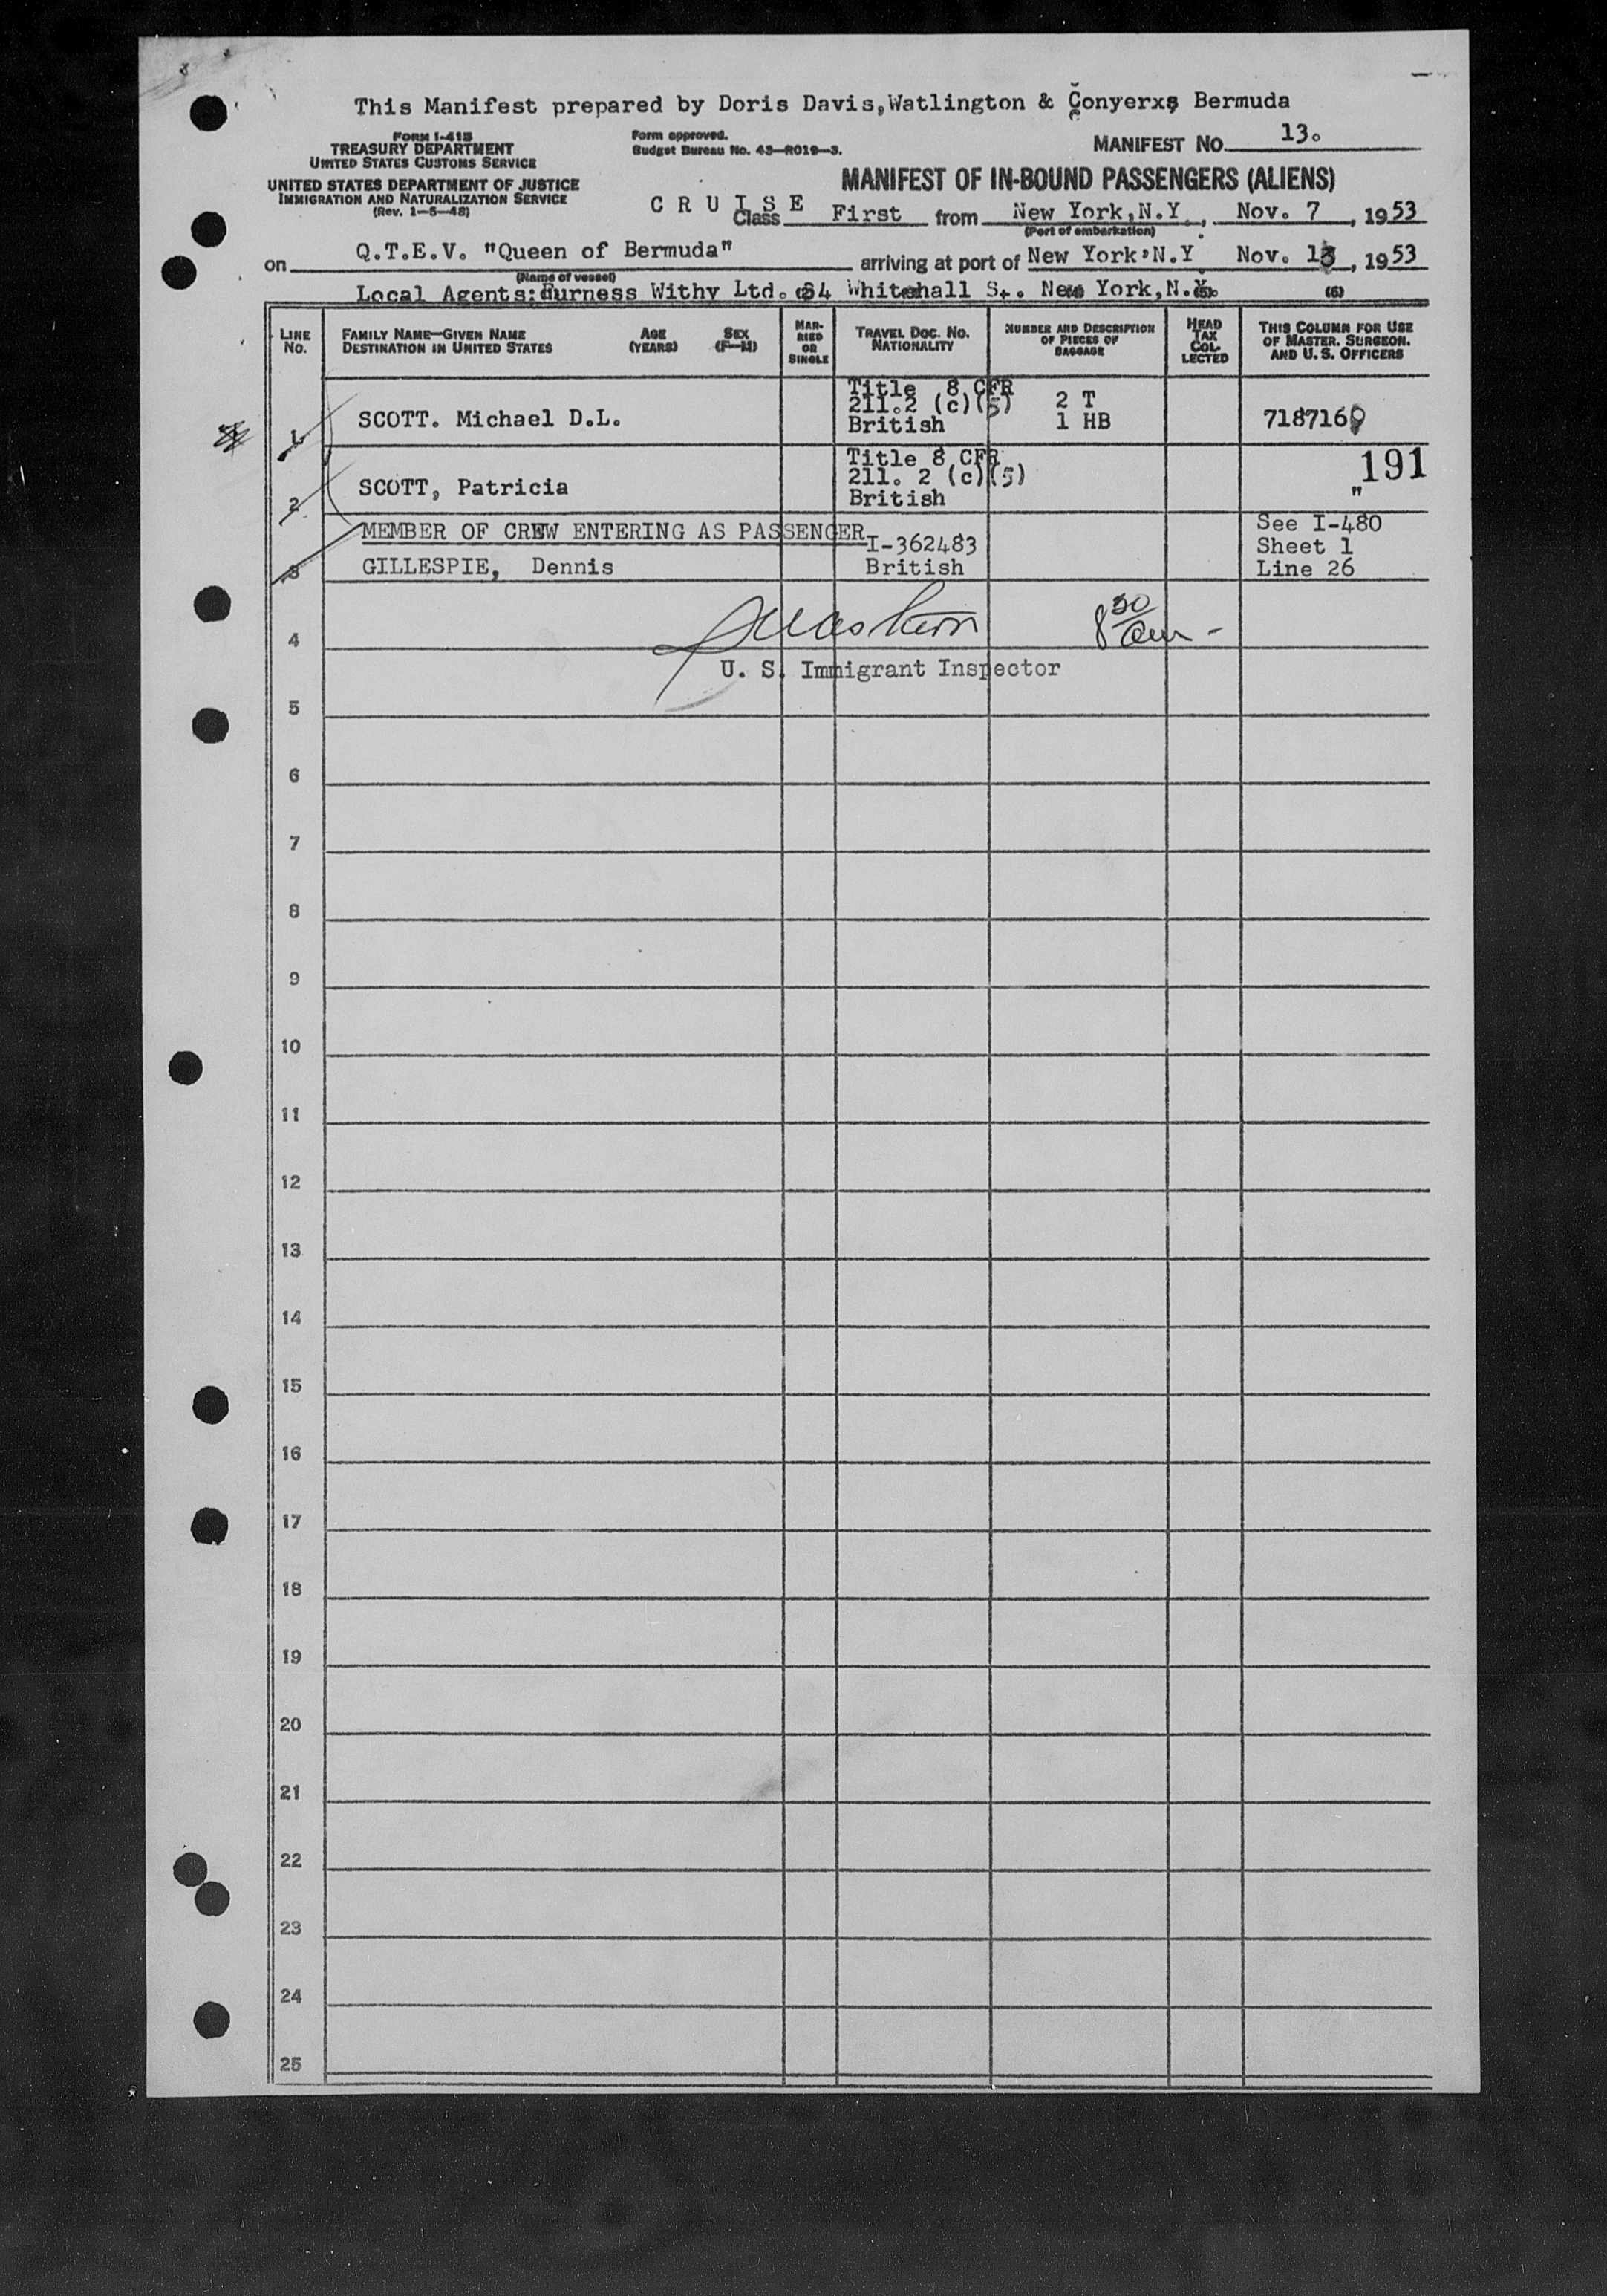 This Manifest prepared by Doris Davis, Watlington & Conyerxs Bermuda
FORM I-418
TREASURY DEPARTMENT
UNITED STATES CUSTOMS SERVICE
UNITED STATES DEPARTMENT OF JUSTICE
IMMIGRATION AND NATURALIZATION SERVICE
(Rev. 1-5-48)
Form approved.
Budget Bureau No. 43-R019-3.
MANIFEST NO. 13.
MANIFEST OF IN-BOUND PASSENGERS (ALIENS)
CRUISE
Class First from New York, N.Y., Nov. 7, 1953
(Port of embarkation)
on Q.T.E.V. "Queen of Bermuda" arriving at port of New York, N.Y. Nov. 13, 1953
(Name of vessel)
Local Agents: Furness Withy Ltd. 34 Whitehall St. New York, N.Y. (5) (6)
LINE No.
FAMILY NAME—GIVEN NAME
DESTINATION IN UNITED STATES
AGE (YEARS)
SEX (F—M)
MARRIED OR SINGLE
TRAVEL DOC. NO. NATIONALITY
NUMBER AND DESCRIPTION OF PIECES OF BAGGAGE
HEAD TAX COLLECTED
THIS COLUMN FOR USE OF MASTER, SURGEON, AND U. S. OFFICERS
1 SCOTT. Michael D.L. Title 8 CFR 211.2 (c)(5) British 2 T 1 HB 718716
2 SCOTT, Patricia Title 8 CFR 211. 2 (c)(5) British " 191
MEMBER OF CREW ENTERING AS PASSENGER
3 GILLESPIE, Dennis I-362483 British See I-480 Sheet 1 Line 26
4 8 30 am -
U. S. Immigrant Inspector
5
6
7
8
9
10
11
12
13
14
15
16
17
18
19
20
21
22
23
24
25